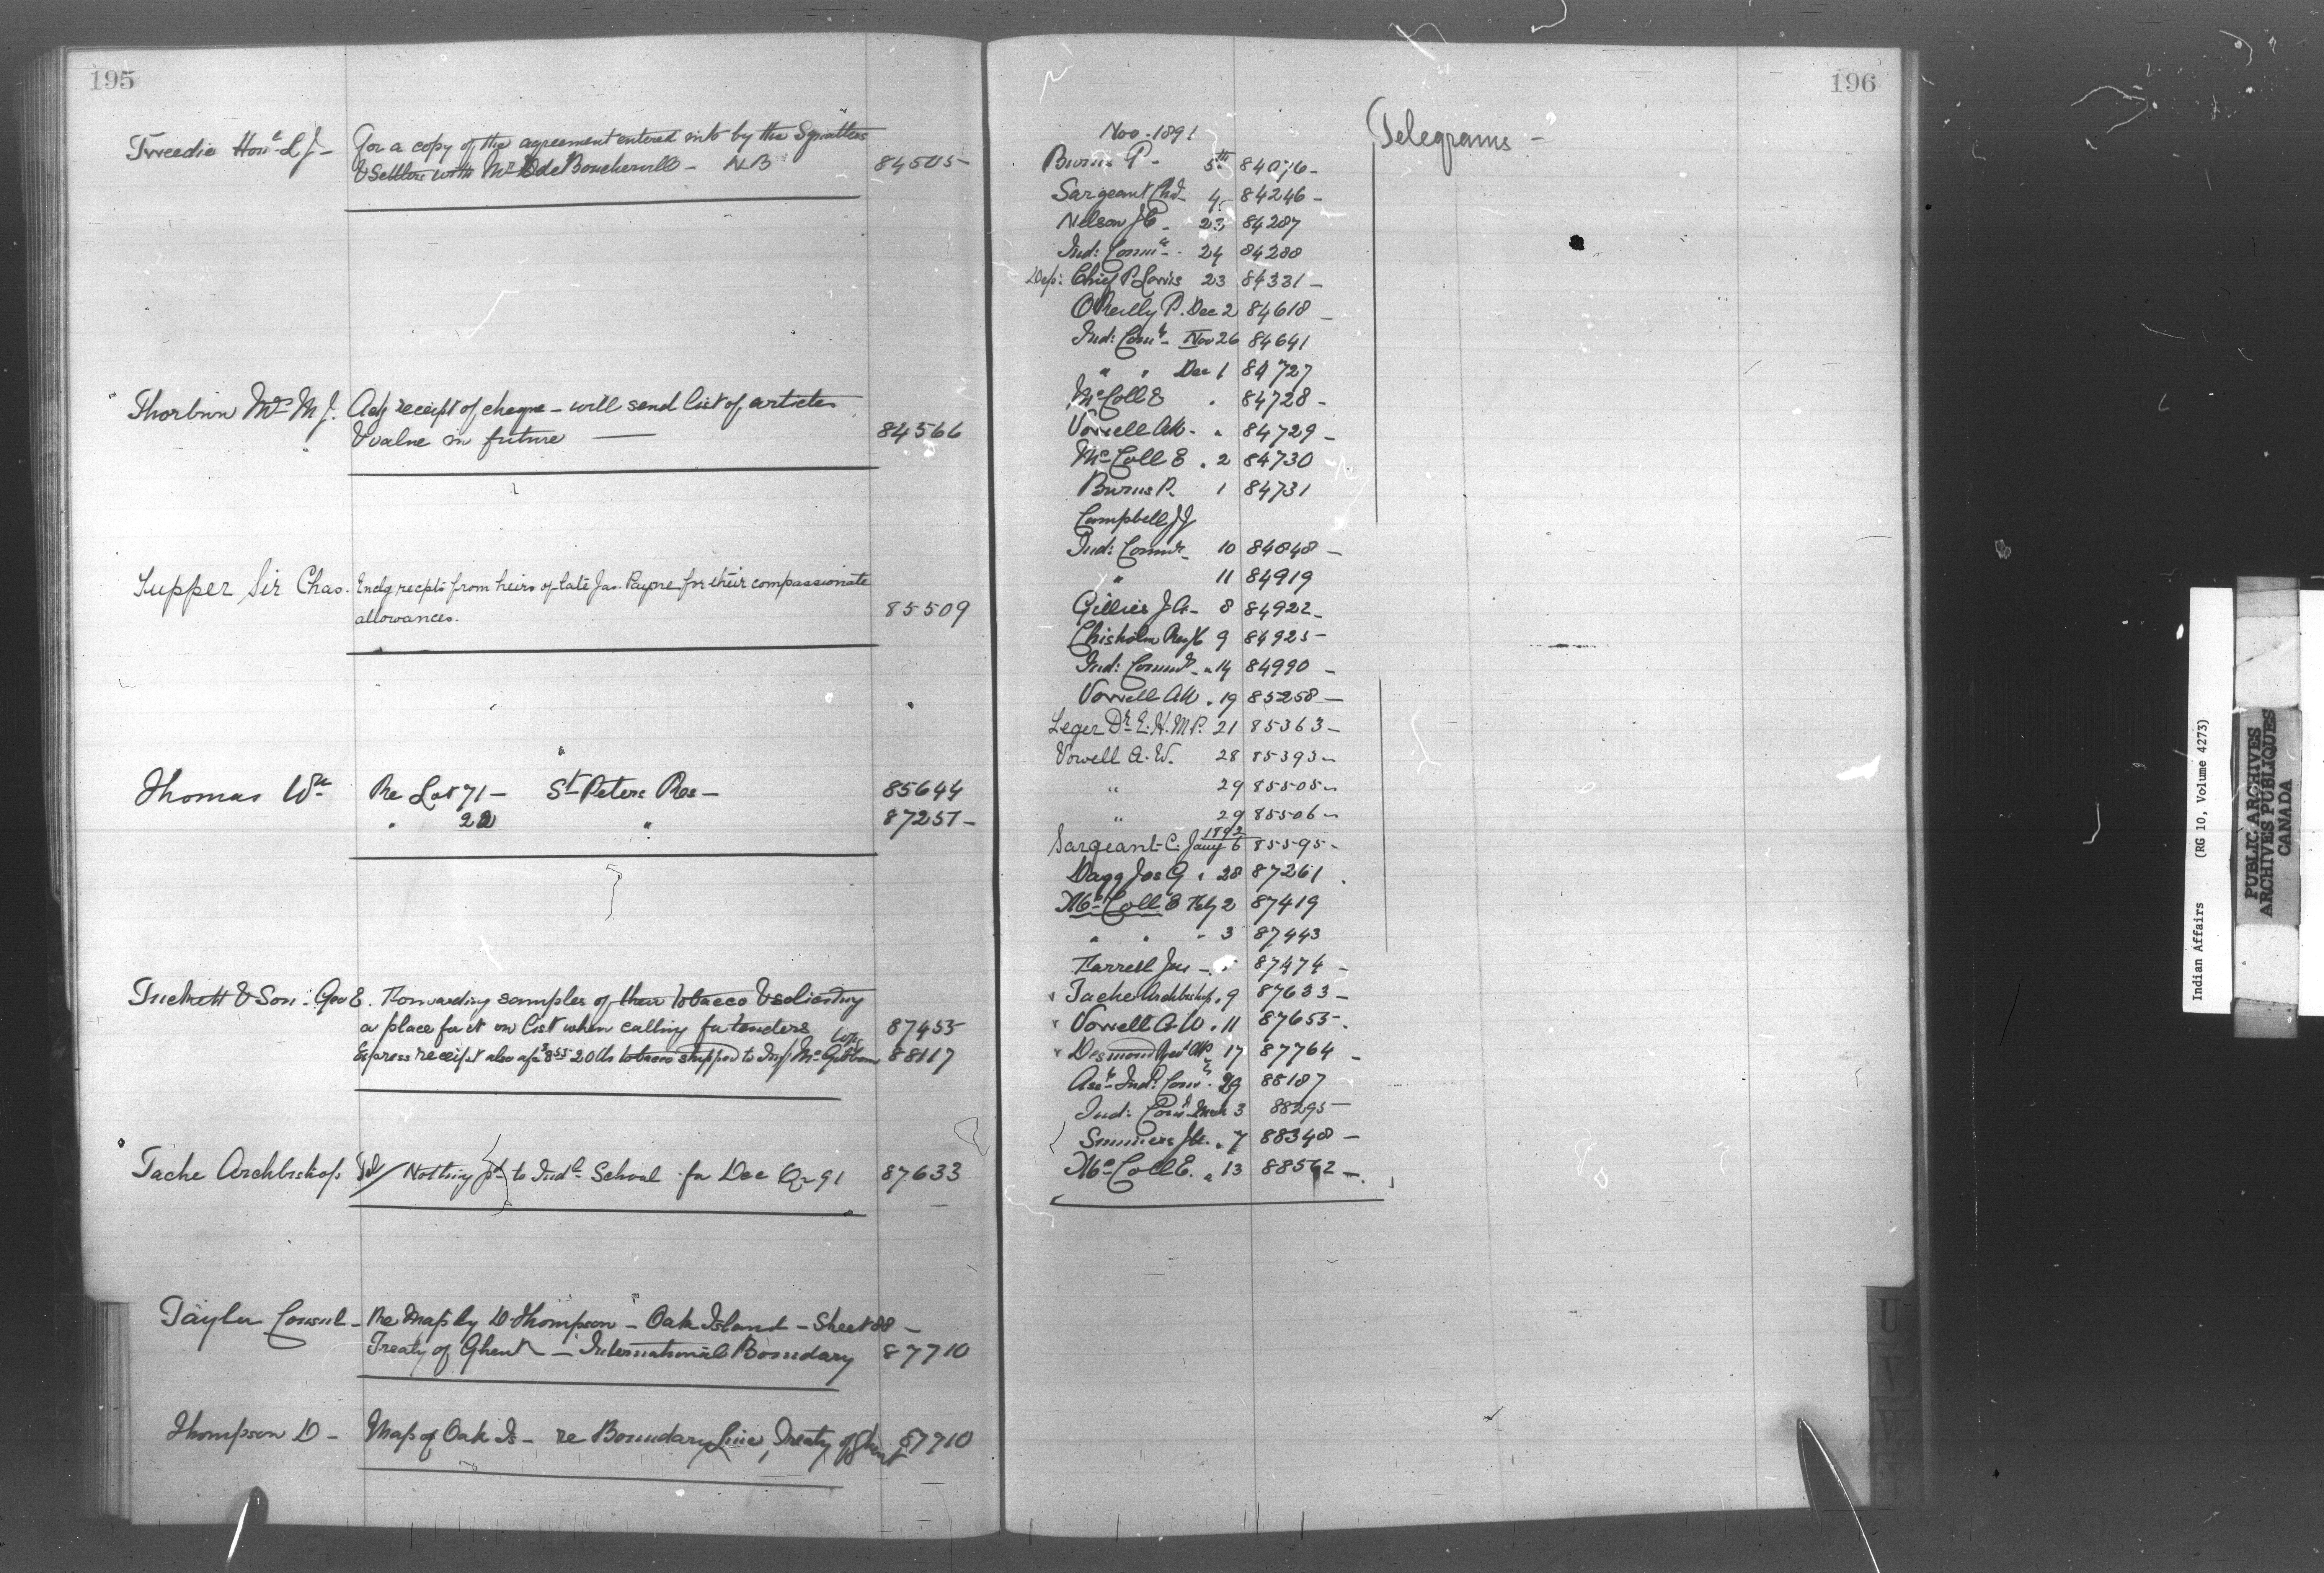 195
Tweedie Hon. L J - For a copy of the agreement entered into by the Squatters
& Settlers with Mr de Boucherville - NB 84505
Thorburn Mrs M J. Ackg receipt of cheque - will send list of articles
& value in future 84566
Tupper Sir Chas. Enclg recpts from heirs of late Jas. Payne for their compassionate
allowances. 85509
Thomas Wm Re Lot 71 - St Peters Res - 85644
" 22 " 87251 -
Tuckett & Son. Geo E. Forwarding samples of their tobacco & soliciting
a place for it on list when calling for tenders 87455
Express receipt also a/c $8.55 20 lbs tobacco shipped to Insp McGibbon 88117
Tache Archbishop Tel / Nothing pd to Indl School for Dec Qr 91 87633
Taylor Consul - Re Map by D Thompson - Oak Island - Sheet 88 -
Treaty of Ghent - International Boundary 87710
Thompson D - Map of Oak Is - re Boundary Line, Treaty of Ghent 87710
196
Telegrams -
Nov. 1891
Burns P - 5th 84076 -
Sargeant Chas 84246 -
Nelson J C - 23 84287
Ind: Commr - 24 84288
Dep: Chief P. Lewis 23 84331 -
O'Reilly P. Dec 2 84618 -
Ind: Comr - Nov 26 84641
" " Dec 1 84727
McColl E " 84728 -
Vowell AW - " 84729 -
McColl E . 2 84730
Burns P. 1 84731
Campbell J J
Ind: Commr - 10 84848 -
" 11 84919
Gillies J A - 8 84922 -
Chisholm 9 84925 -
Ind: Commr - " 14 84990 -
Vowell AW . 19 85258 -
Leger Dr E. H. M.P. 21 85363 -
Vowell A. W. 28 85393 -
" 29 85505 -
" 29 85506 -
1892
Sargeant C. Jany 6 85595 -
Dagg Jos G " 28 87261 .
McColl E Feby 2 87419
" " - 3 87443
Farrell Jas - 87474 -
Tache Archbishop " 9 87633 -
Vowell A. W . 11 87655 .
Desmond 17 87764 -
Asst Ind. Comr. 29 88187
Ind: Comr March 3 88295 -
J . 7 88348 -
McColl E. " 13 88562 -
U
V
W
Indian Affairs (RG 10, Volume 4273)
PUBLIC ARCHIVES
ARCHIVES PUBLIQUES
CANADA